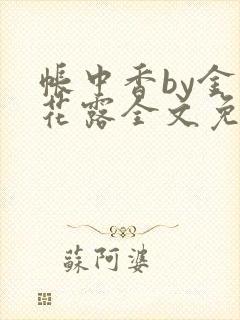 帳中香by金
花露全文免
蘇阿婆